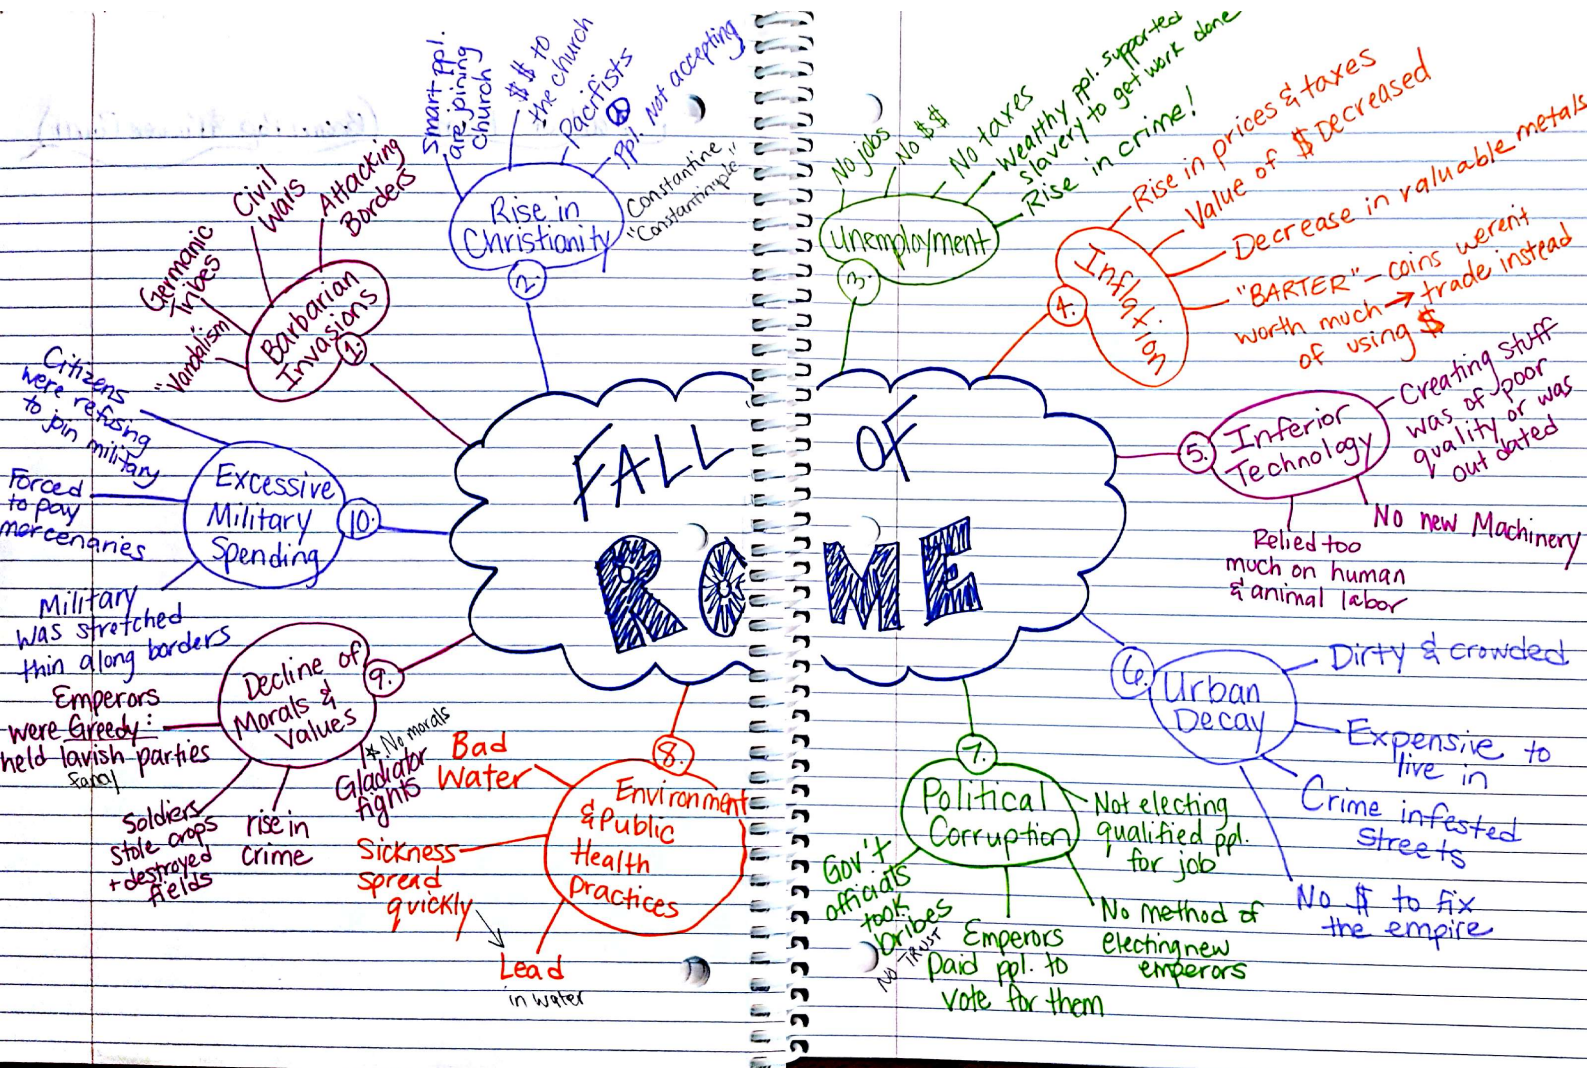 FALL OF
ROME
1.
Barbarian
Invasions
"Vandalism
Germanic
Tribes
Civil
Wars
Attacking
Borders
2.
Rise in
Christianity
Smart ppl.
are joining
church
$$ to
the church
Pacifists
Ppl. Not accepting
Constantine
"Constantinople"
3.
Unemployment
No jobs
No $$
No taxes
Wealthy ppl. supported
slavery to get work done
Rise in crime!
4.
Inflation
Rise in prices & taxes
Value of $ Decreased
Decrease in valuable metals
"BARTER" – coins werent
worth much → trade instead
of using $
5.
Inferior
Technology
Creating stuff
was of poor
quality or was
out dated
No new Machinery
Relied too
much on human
& animal labor
6.
Urban
Decay
Dirty & crowded
Expensive to
live in
Crime infested
streets
No $ to fix
the empire
7.
Political
Corruption
Not electing
qualified ppl.
for job
No method of
electing new
emperors
Emperors
paid ppl. to
vote for them
Gov't
officials
took
bribes
NO TRUST
8.
Environment
& Public
Health
Practices
Bad
Water
Sickness
spread
quickly
Lead
in water
9.
Decline of
Morals &
Values
Emperors
were Greedy:
held lavish parties
fancy
Soldiers
stole crops
+ destroyed
fields
rise in
crime
* No morals
Gladiator
fights
10.
Excessive
Military
Spending
Citizens
were refusing
to join military
Forced
to pay
mercenaries
Military
was stretched
thin along borders